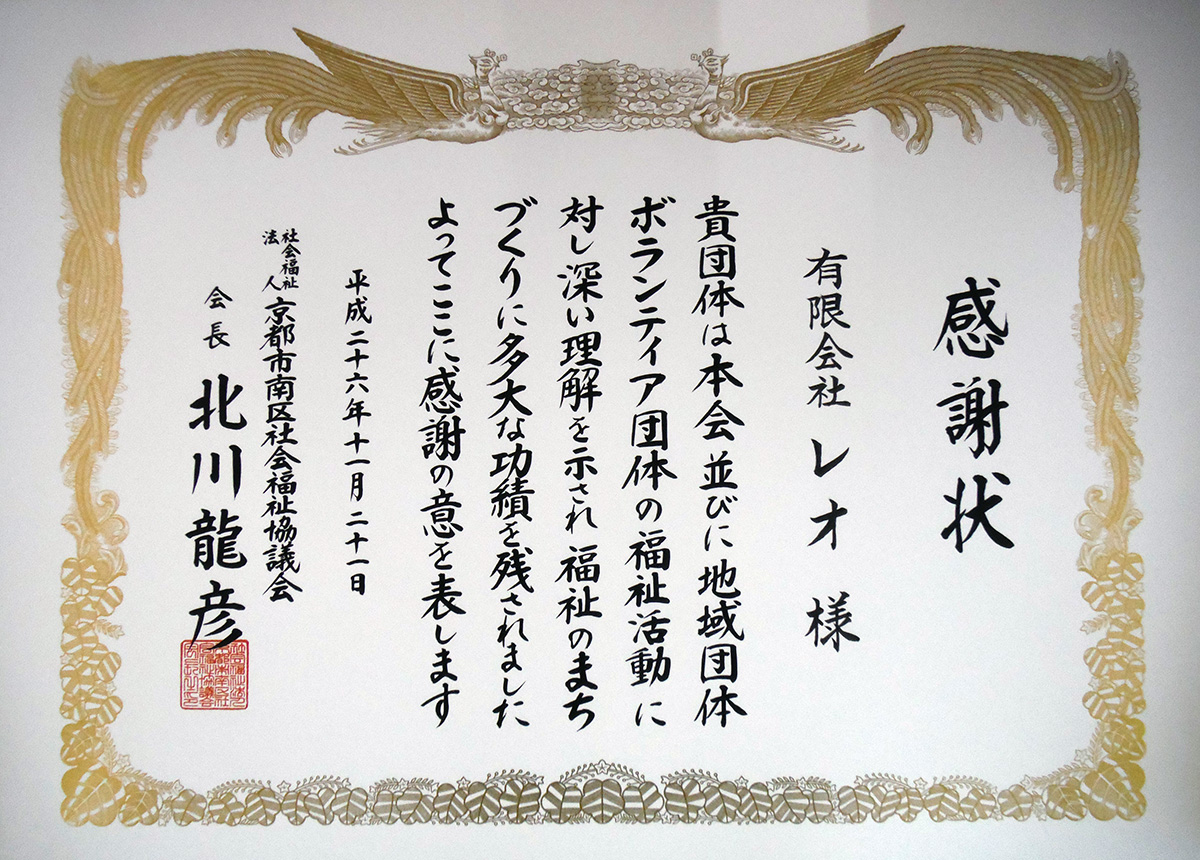 感謝状
有限会社 レオ 様
貴団体は本会並びに地域団体
ボランティア団体の福祉活動に
対し深い理解を示され福祉のまち
づくりに多大な功績を残されました
よってここに感謝の意を表します
平成二十六年十一月二十一日
社会福祉法人 京都市南区社会福祉協議会
会長 北川龍彦